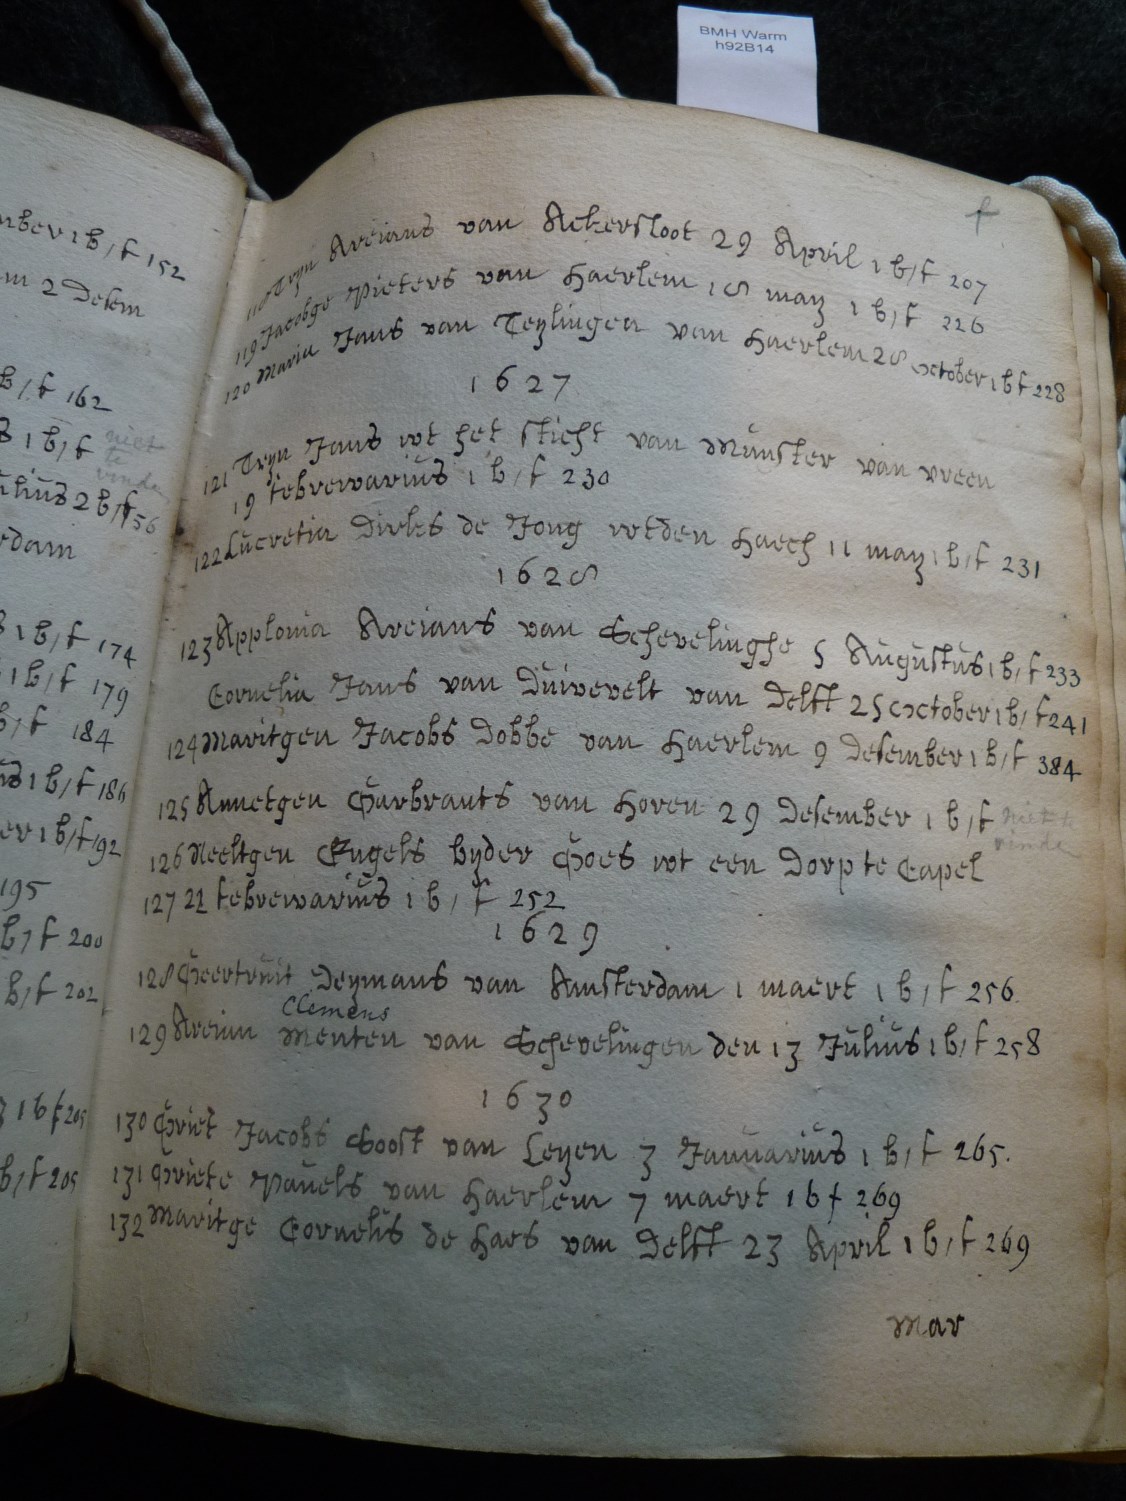 BMH Warm
h92B14
mber 1 b, f 152
em 2 Desem
b, f 162
1 b, f niet
te
vinde
ulius 2 b, f 56
rdam
1 b, f 174
1 b, f 179
b, f 184
1 b, f 186
er 1 b, f 192
195
b, f 200
b, f 202
1 b f 205
b, f 205
f
118 Tryn Areians van Ackersloot 29 April 1 b, f 207
119 Jacobge Pieters van Haerlem 18 may 1 b, f 226
120 Maria Jans van Teylingen van Haerlem 28 october 1 b f 228
1627
121 Tryn Jans wt het sticht van Munster van vreen
19 febrewarius 1 b, f 230
122 Lucretia Dirks de Jong wt den Haech 11 may 1 b, f 231
1628
123 Applonia Areians van Schevelinghe 5 Augustus 1 b, f 233
Cornelia Jans van Duivevelt van Delft 25 october 1 b, f 241
124 Maritgen Jacobs Dobbe van Haerlem 9 Desember 1 b, f 384
125 Annetgen Garbrants van Horen 29 Desember 1 b, f niet te
vinde
126 Neeltgen Engels byder Goes wt een Dorp te Capel
127 22 febrewarius 1 b, f 252
1629
128 Geertruit Deymans van Amsterdam 1 maert 1 b, f 256
Clemens
129 Areian Menten van Schevelingen den 13 Julius 1 b, f 258
1630
130 Griet Jacobs Soost van Leyen 3 Januarius 1 b, f 265.
131 Griete Pauels van Haerlem 7 maert 1 b f 269
132 Maritge Cornelis de Haes van Delft 23 April 1 b, f 269
Mar